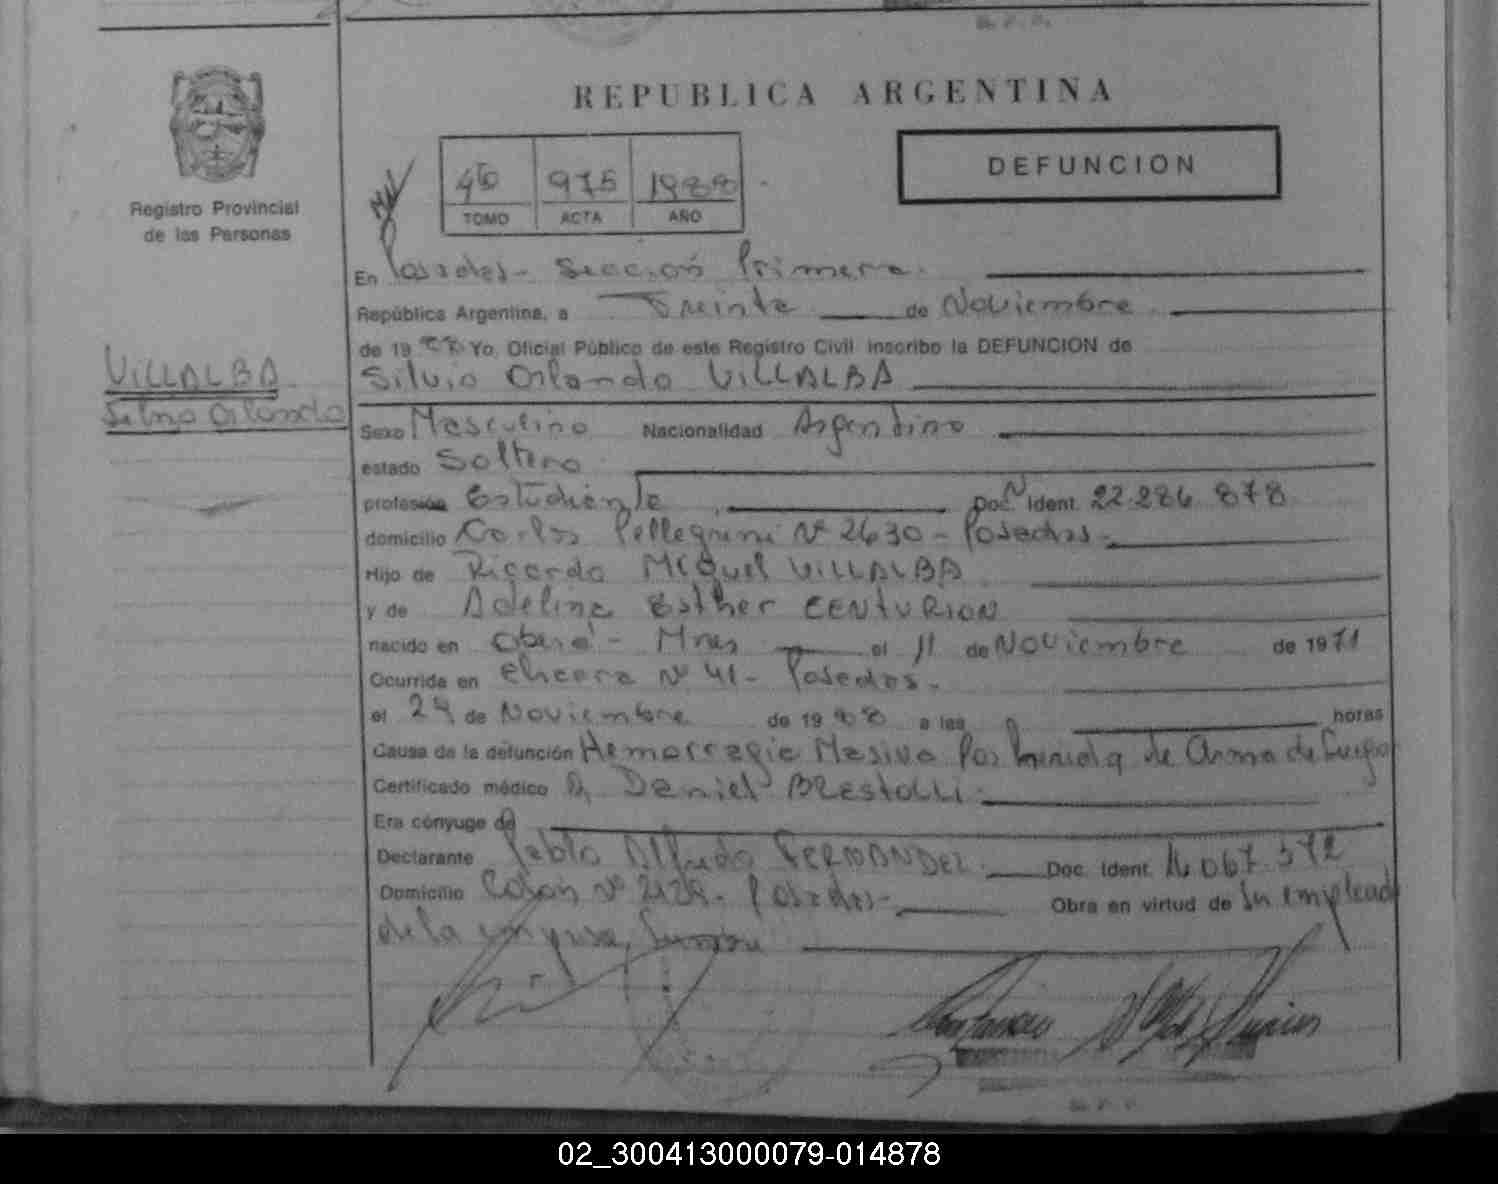 REPUBLICA ARGENTINA
DEFUNCION
975 1988
TOMO ACTA AÑO
Registro Provincial
de las Personas
En Posadas - Sección Primera.
República Argentina, a Treinta de Noviembre
de 19 88 Yo, Oficial Público de este Registro Civil inscribo la DEFUNCION de
Silvio Orlando VILLALBA
VILLALBA
Silvio Orlando
Sexo Masculino Nacionalidad Argentino
estado Soltero
profesión Estudiante Doc. Ident. 22.286.878
domicilio Carlos Pellegrini Nº 2630 - Posadas.
Hijo de Ricardo Miguel VILLALBA
y de Adelina Esther CENTURION
nacido en Oberá - Mnes el 11 de Noviembre de 1971
Ocurrida en Nº 41 - Posadas.
el 29 de Noviembre de 1988 a las horas
Causa de la defunción Hemorragia Masiva Por herida de Arma de fuego
Certificado médico Dr Daniel
Era cónyuge de
Declarante Pablo Alfredo FERNANDEZ. Doc. Ident.
Domicilio Colón Nº Posadas - Obra en virtud de Su emplead
de la empresa,
02_300413000079-014878